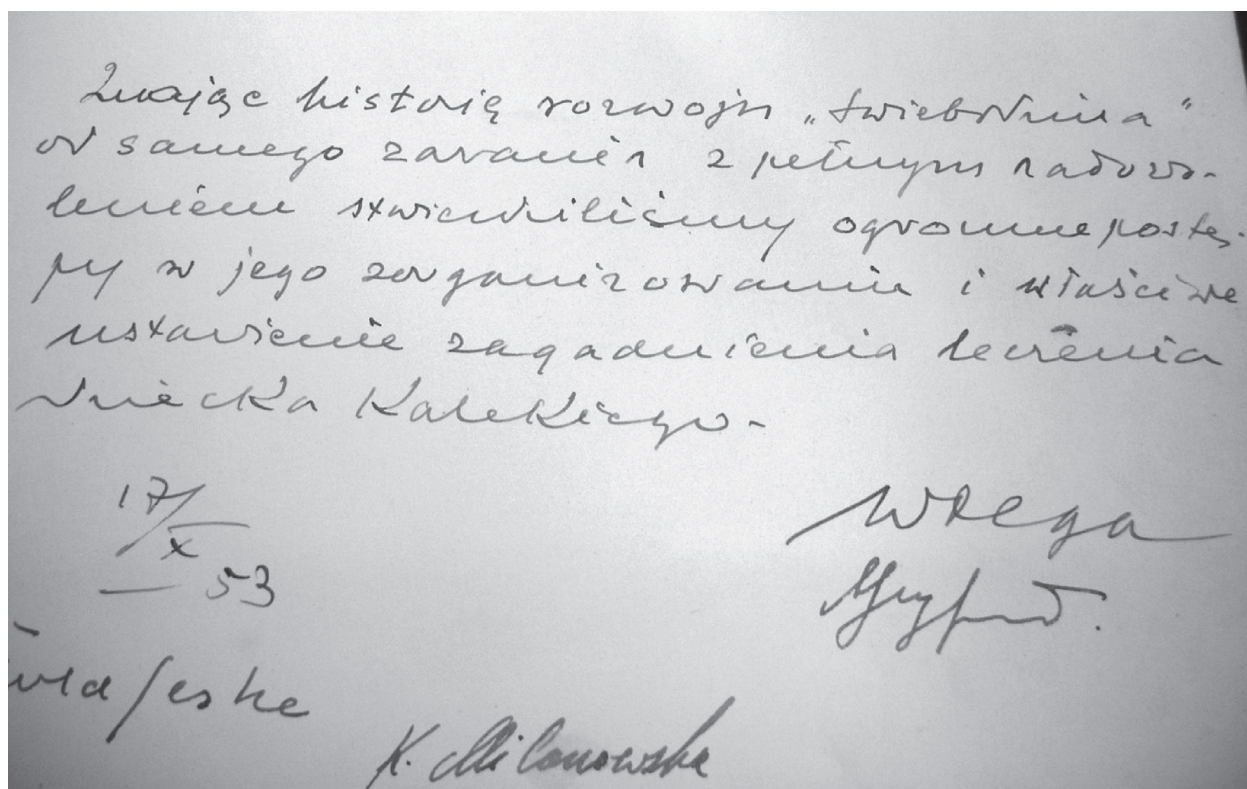 Znając historię rozwoju „Świebodzina"
od samego zarania z pełnym zadowo-
leniem stwierdziliśmy ogromne postę-
py w jego zorganizowaniu i właściwe
ustawienie zagadnienia leczenia
dziecka kalekiego.
17/X 53
Wdega
Jeske
K. Milanowska